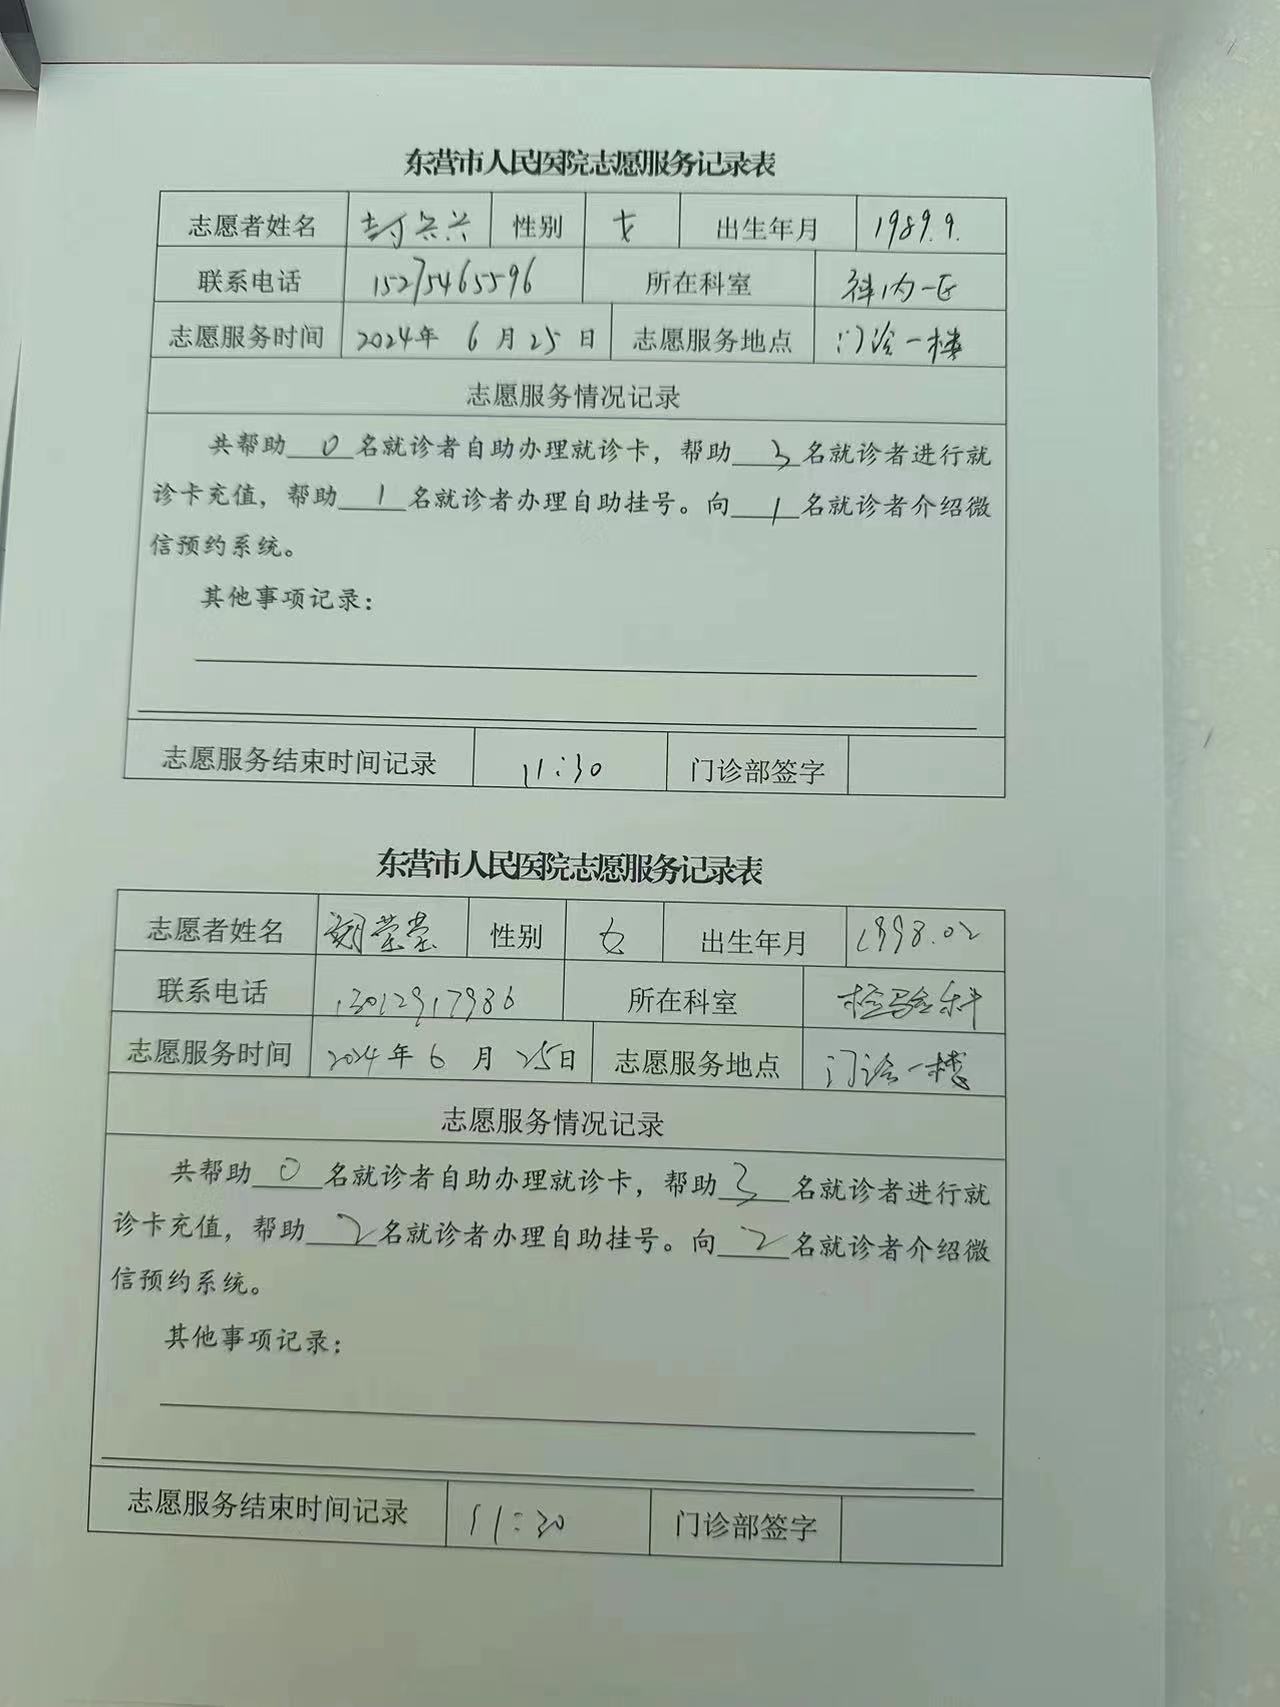 东营市人民医院志愿服务记录表
志愿者姓名 封兴兴 性别 女 出生年月 1989.9.
联系电话 15275465596 所在科室 神内一区
志愿服务时间 2024年 6月25日 志愿服务地点 门诊一楼
志愿服务情况记录
共帮助 0 名就诊者自助办理就诊卡，帮助 3 名就诊者进行就
诊卡充值，帮助 1 名就诊者办理自助挂号。向 1 名就诊者介绍微
信预约系统。
其他事项记录：
志愿服务结束时间记录 11:30 门诊部签字
东营市人民医院志愿服务记录表
志愿者姓名 性别 女 出生年月 1998.02
联系电话 13012917986 所在科室 检验科
志愿服务时间 2024年 6月 25日 志愿服务地点 门诊一楼
志愿服务情况记录
共帮助 0 名就诊者自助办理就诊卡，帮助 3 名就诊者进行就
诊卡充值，帮助 2 名就诊者办理自助挂号。向 2 名就诊者介绍微
信预约系统。
其他事项记录：
志愿服务结束时间记录 11:30 门诊部签字